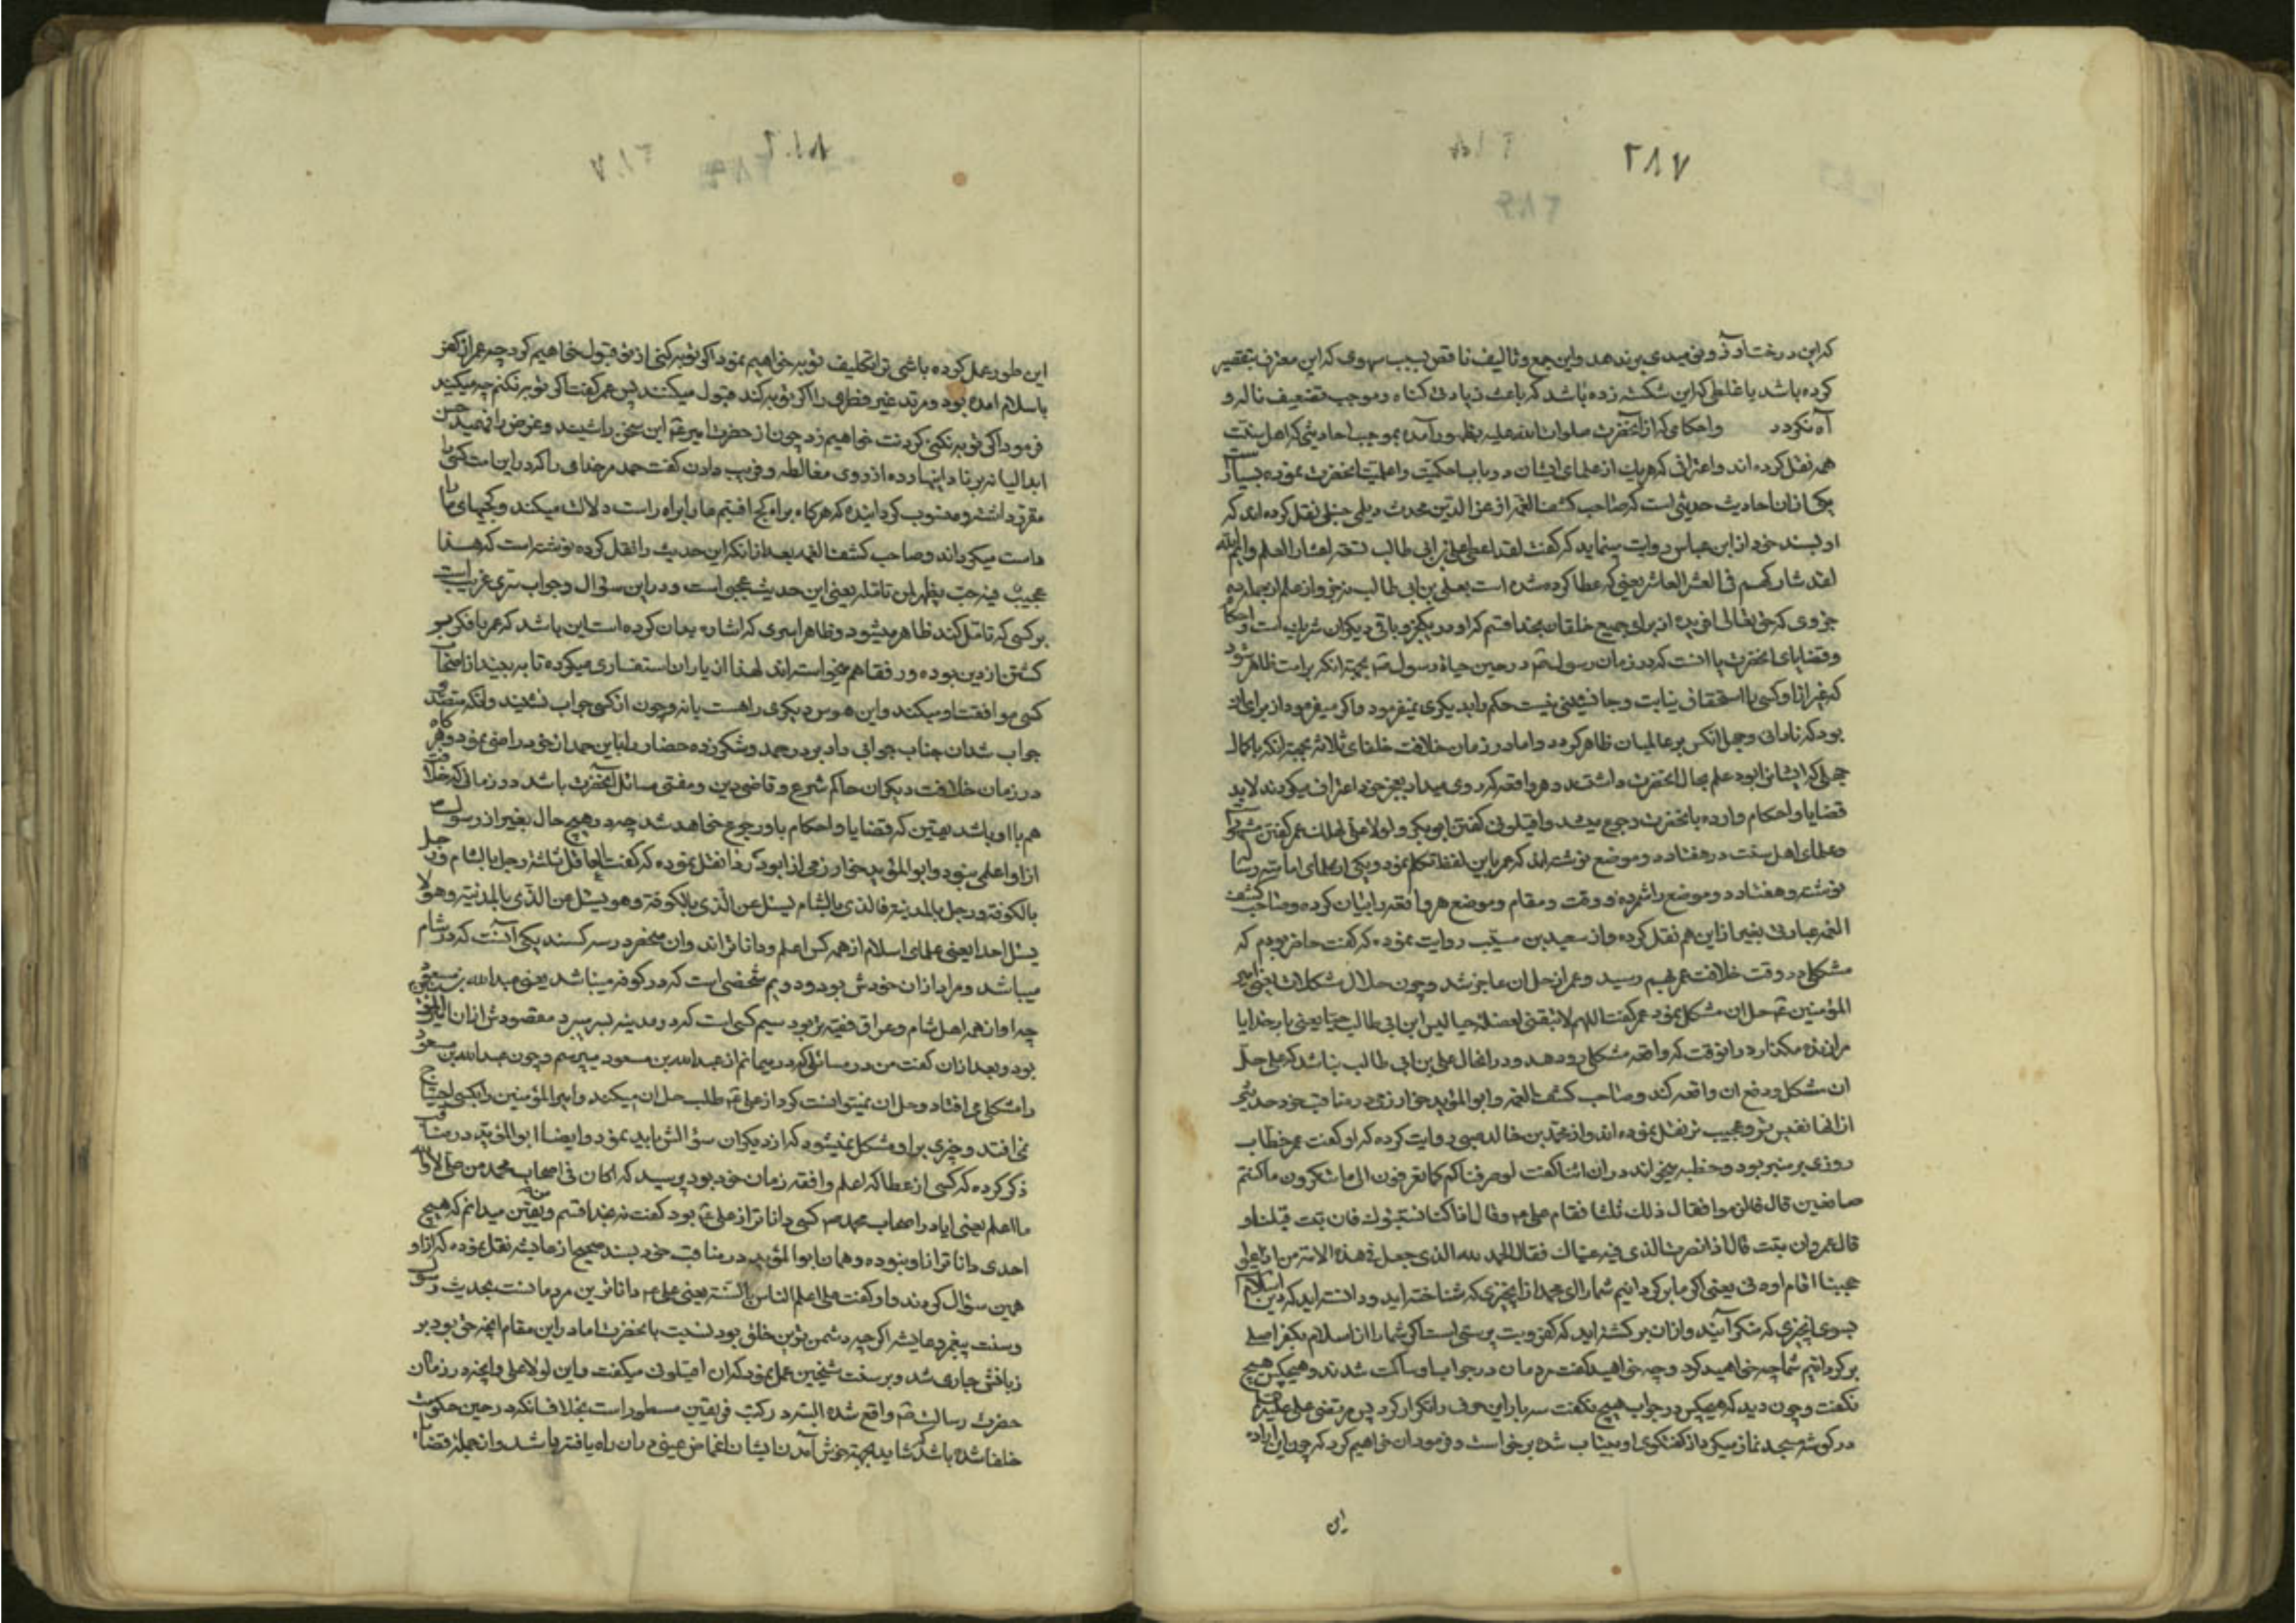 ۲۸۷
که این درخت او ذوقی میدی برندهد و این جمع و تالیف ناقص بسبب سهوی که این معترف بتقصیر
کرده باشد یا غلطی که این شکسته زده باشد که باعث زیادتی کناه و موجب تضعیف ناله و
آه نکردد واحکامی که از آنحضرت صلوات الله علیه بظهور آمده بموجب احادیثی که اهل سنت
همه نقل کرده اند و اعترافی که هریک از علمای ایشان در باب احکمیت و اعلمیت آنحضرت نموده بسیار است
یکی از ان احادیث حدیثی است که صاحب کشف الغمه از عز الدین محدث دیلمی حنبلی نقل کرده اند که
او بسند خود از ابن عباس روایت مینماید که گفت لقد اعطی علی بن ابی طالب تسعة اعشار العلم و ایم الله
لقد شارکهم فی العشر العاشر یعنی که عطا کرده شده است بعلی بن ابی طالب نه جزو از علم از جمله ده
جزوی که حق تعالی افریده از برای جمیع خلقان بخدا قسم که او در یکجزو باقی دیکران شریک است و احکام
و قضایای انحضرت یا انست که در زمان رسول در حین حیاة رسول بجهة انکه بر امت ظاهر شود
که غیر از او کسی را استحقاق نیابت و جانشینی نیست حکم را بدیکری نمیفرمود و اکر میفرمود از برای ان
بود که نادانی و جهل انکس بر عالمیان ظاهر کردد و اما در زمان خلافت خلفای ثلاثه بجهة انکه با کمال
جهلی که ایشانرا بود علم بحال انحضرت داشتند و هر واقعه که روی میداد بعجز خود اعتراف میکردند لابد
قضایا و احکام وارده بانحضرت رجوع میشد و اقیلونی کفتن ابو بکر و لولا علی لهلك عمر کفتن عمر مشهور است
و علمای اهل سنت در هفتاد و دو موضع نوشته اند که عمر باین لفظ تکلم نموده و یکی از علمای امامیه رساله
نوشته و هفتاد و دو موضع را شمرده و وقت و مقام و موضع هر واقعه را بیان کرده و صاحب کشف
الغمه عبارتی بغیر از این هم نقل کرده و از سعید بن مسیب روایت نموده که گفت حاضر بودم که
مشکلی در وقت خلافت عمر بهم رسید و عمر از حل ان عاجز شد و چون حلال مشکلات یعنی امیر
المؤمنین حل ان مشکل نمود عمر کفت اللهم لا تبقنی لمعضلة حیا لیس ابن ابی طالب حیا یعنی بار خدایا
مرا زنده مکذار در انوقت که واقعه مشکلی رودهد و در انحال علی بن ابی طالب نباشد که علی حل
ان مشکل و دفع ان واقعه کند و صاحب کشف الغمه و ابو المؤید خوارزمی در مناقب خود حدیثی
از انها نفیس تر و عجیب تر نقل نموده اند و از محمد بن خالد ضبی روایت کرده که او کفت عمر خطاب
روزی بر منبر بود و خطبه میخواند در ان اثنا کفت لو صرفناکم کما تعرفون الی ما تنکرون ما کنتم
صانعین قال فالزموا فقال ذلك ثلثا فقام علی و قال اذا کنا نستتیبك فان تبت قبلناك
قال عمر وان تبت قال اذا نضرب الذی فیه عیناك فقال الحمد لله الذی جعل فی هذه الامة من اذا
عوججنا اقام اودنا یعنی اکر ما بر کردانیم شما را الی جمد از انچیزی که شناخته اید و دانسته اید که دین اسلام
بسوی انچیزی که منکر آنید و ازان بر کشته اید که کفر و بت پرستی است اکر شما را از اسلام بکفر اصلی
بر کردانیم شما چه خواهید کرد و چه خواهید کفت مردمان در جواب او ساکت شدند و هیچکس هیچ
نکفت و چون دید که هیچکس در جواب هیچ نکفت سه بار این حرف را تکرار کرد پس مرتضی علی علیه
در کوشه مسجد نماز میکرد از گفتکوی او بیتاب شده برخاست و فرمود ان خواهیم کرد که چون این اراده
این
این طور عمل کرده باشی ترا تکلیف توبه خواهیم نمود اکر توبه کنی از تو قبول خواهیم کرد چه عمر از کفر
باسلام امده بود و مرتد غیر فطری را اکر توبه کند قبول میکنند پس عمر کفت اکر توبه نکنم چه میکنید
فرمود اکر توبه نکنی کردنت خواهیم زد چون از حضرت امیر این سخن را شنید و عرض را فهمید
مقرر داشته و منسوب کردانیده که هرکاه براه کج افتیم ما را براه راست دلالت میکند و کجیهای ما را
راست میکرداند و صاحب کشف الغمه بعد از انکه این حدیث را نقل کرده نوشته است که هذا
عجیب فیه حب یظهر لمن تامله یعنی این حدیث عجبی است و در این سؤال و جواب سری غریب است
بر کسی که تامل کند ظاهر میشود و ظاهرا سری که اشاره بدان کرده است این باشد که عمر با فکر بر
کشتن از دین بوده و رفقا هم میخواسته اند لهذا از یاران استفساری میکرده تا به بیند از اصحاب
کسی موافقت او میکند و این هوس دیکری را هست یا نه و چون از کسی جواب نشنید و انکه متصدی
جواب شد ان جناب جوابی داد بر در حمد و شکر زده حضار را باین حمد از خود راضی نمود و هرکاه
در زمان خلافت دیکران حاکم شرع و قاضی دین و مفتی مسائل آنحضرت باشد در زمانی که خلافت
هم با او باشد یقین که قضایا و احکام باو رجوع خواهد شد چه در هیچ حال بغیر از رسول
از او اعلمی نبود و ابو المؤید خوارزمی از ابو درداء نقل نموده که گفت العاقل ثلثة رجل بالشام و رجل
بالکوفة و رجل بالمدینة فالذی بالشام یسئل عن الذی بالکوفة و هو یسئل عن الذی بالمدینة و هو لا
یسئل احدا یعنی علمای اسلام از همه کس اعلم و دانا تراند وان منحصر در سه کسند یکی آنست که در شام
میباشد و مراد ازان خودش بود و دویم شخصی است که در کوفه میباشد یعنی عبد الله بن مسعود
چه او از همه اهل شام و عراق فقیه تر بود سیم کسی است که در مدینه بسر میبرد مقصودش ازان امیر المؤمنین
بود و بعد ازان کفت من در مسائلی که در میمانم از عبد الله بن مسعود میپرسم و چون عبد الله بن مسعود
را مشکلی می افتاد و حل ان نمیتوانست کرد از علی طلب حل ان میکند و امیر المؤمنین را بکسی احتیاج
نمی افتد و چیزی بر او مشکل نمیشود که از دیکران سؤالش باید نمود و ایضا ابو المؤید در مناقب
ذکر کرده که کسی از عطا که اعلم و افقه زمان خود بود پرسید که اکان فی اصحاب محمد من
ما اعلم یعنی ایا در اصحاب محمد کسی دانا تر از علی بود کفت نه بخدا قسم و یقین میدانم که هیچ
احدی دانا تر از او نبوده و همان ابو المؤید در مناقب خود بسند صحیح از عایشه نقل نموده که از او
همین سؤال کردند و او کفت علی اعلم الناس بالسنة یعنی علی دانا ترین مردمانست بحدیث رسول
و سنت پیغمبر و عایشه اکر چه دشمن ترین خلق بود نسبت بانحضرت اما در این مقام انچه حق بود بر
زبانش جاری شد و بر سنت شیخین عمل نمود که ان اقیلونی میکفت و این لولا علی و انچه در زمان
حضرت رسالت واقع شده البته در کتب فریقین مسطور است بخلاف انکه در حین حکومت
خلفا شده باشد که شاید بجهة خوش آمدن ایشان اغماض عینی دران راه یافته باشد و از جمله قضایا